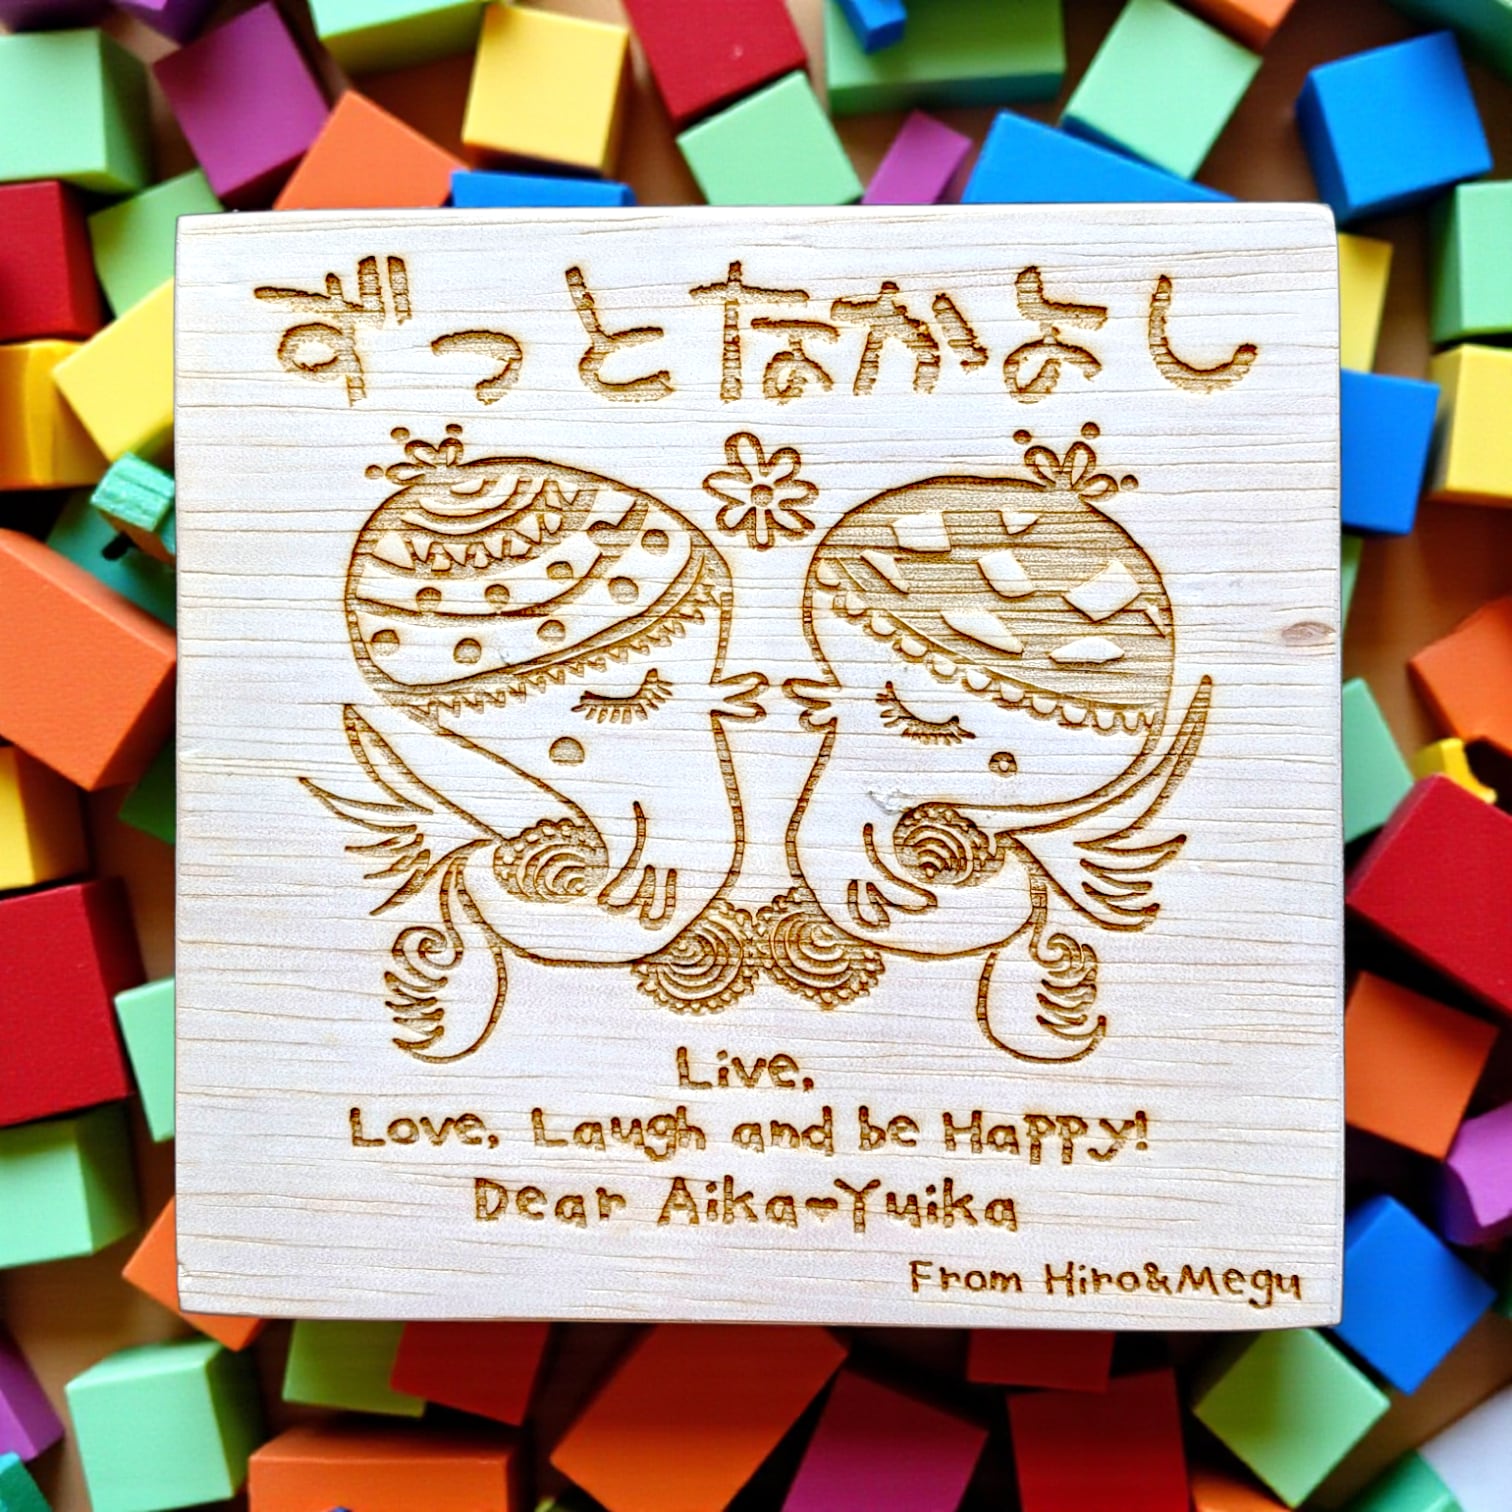 ずっとなかよし
Live,
Love, Laugh and be Happy!
Dear Aika♥Yuika
From Hiro&Megu